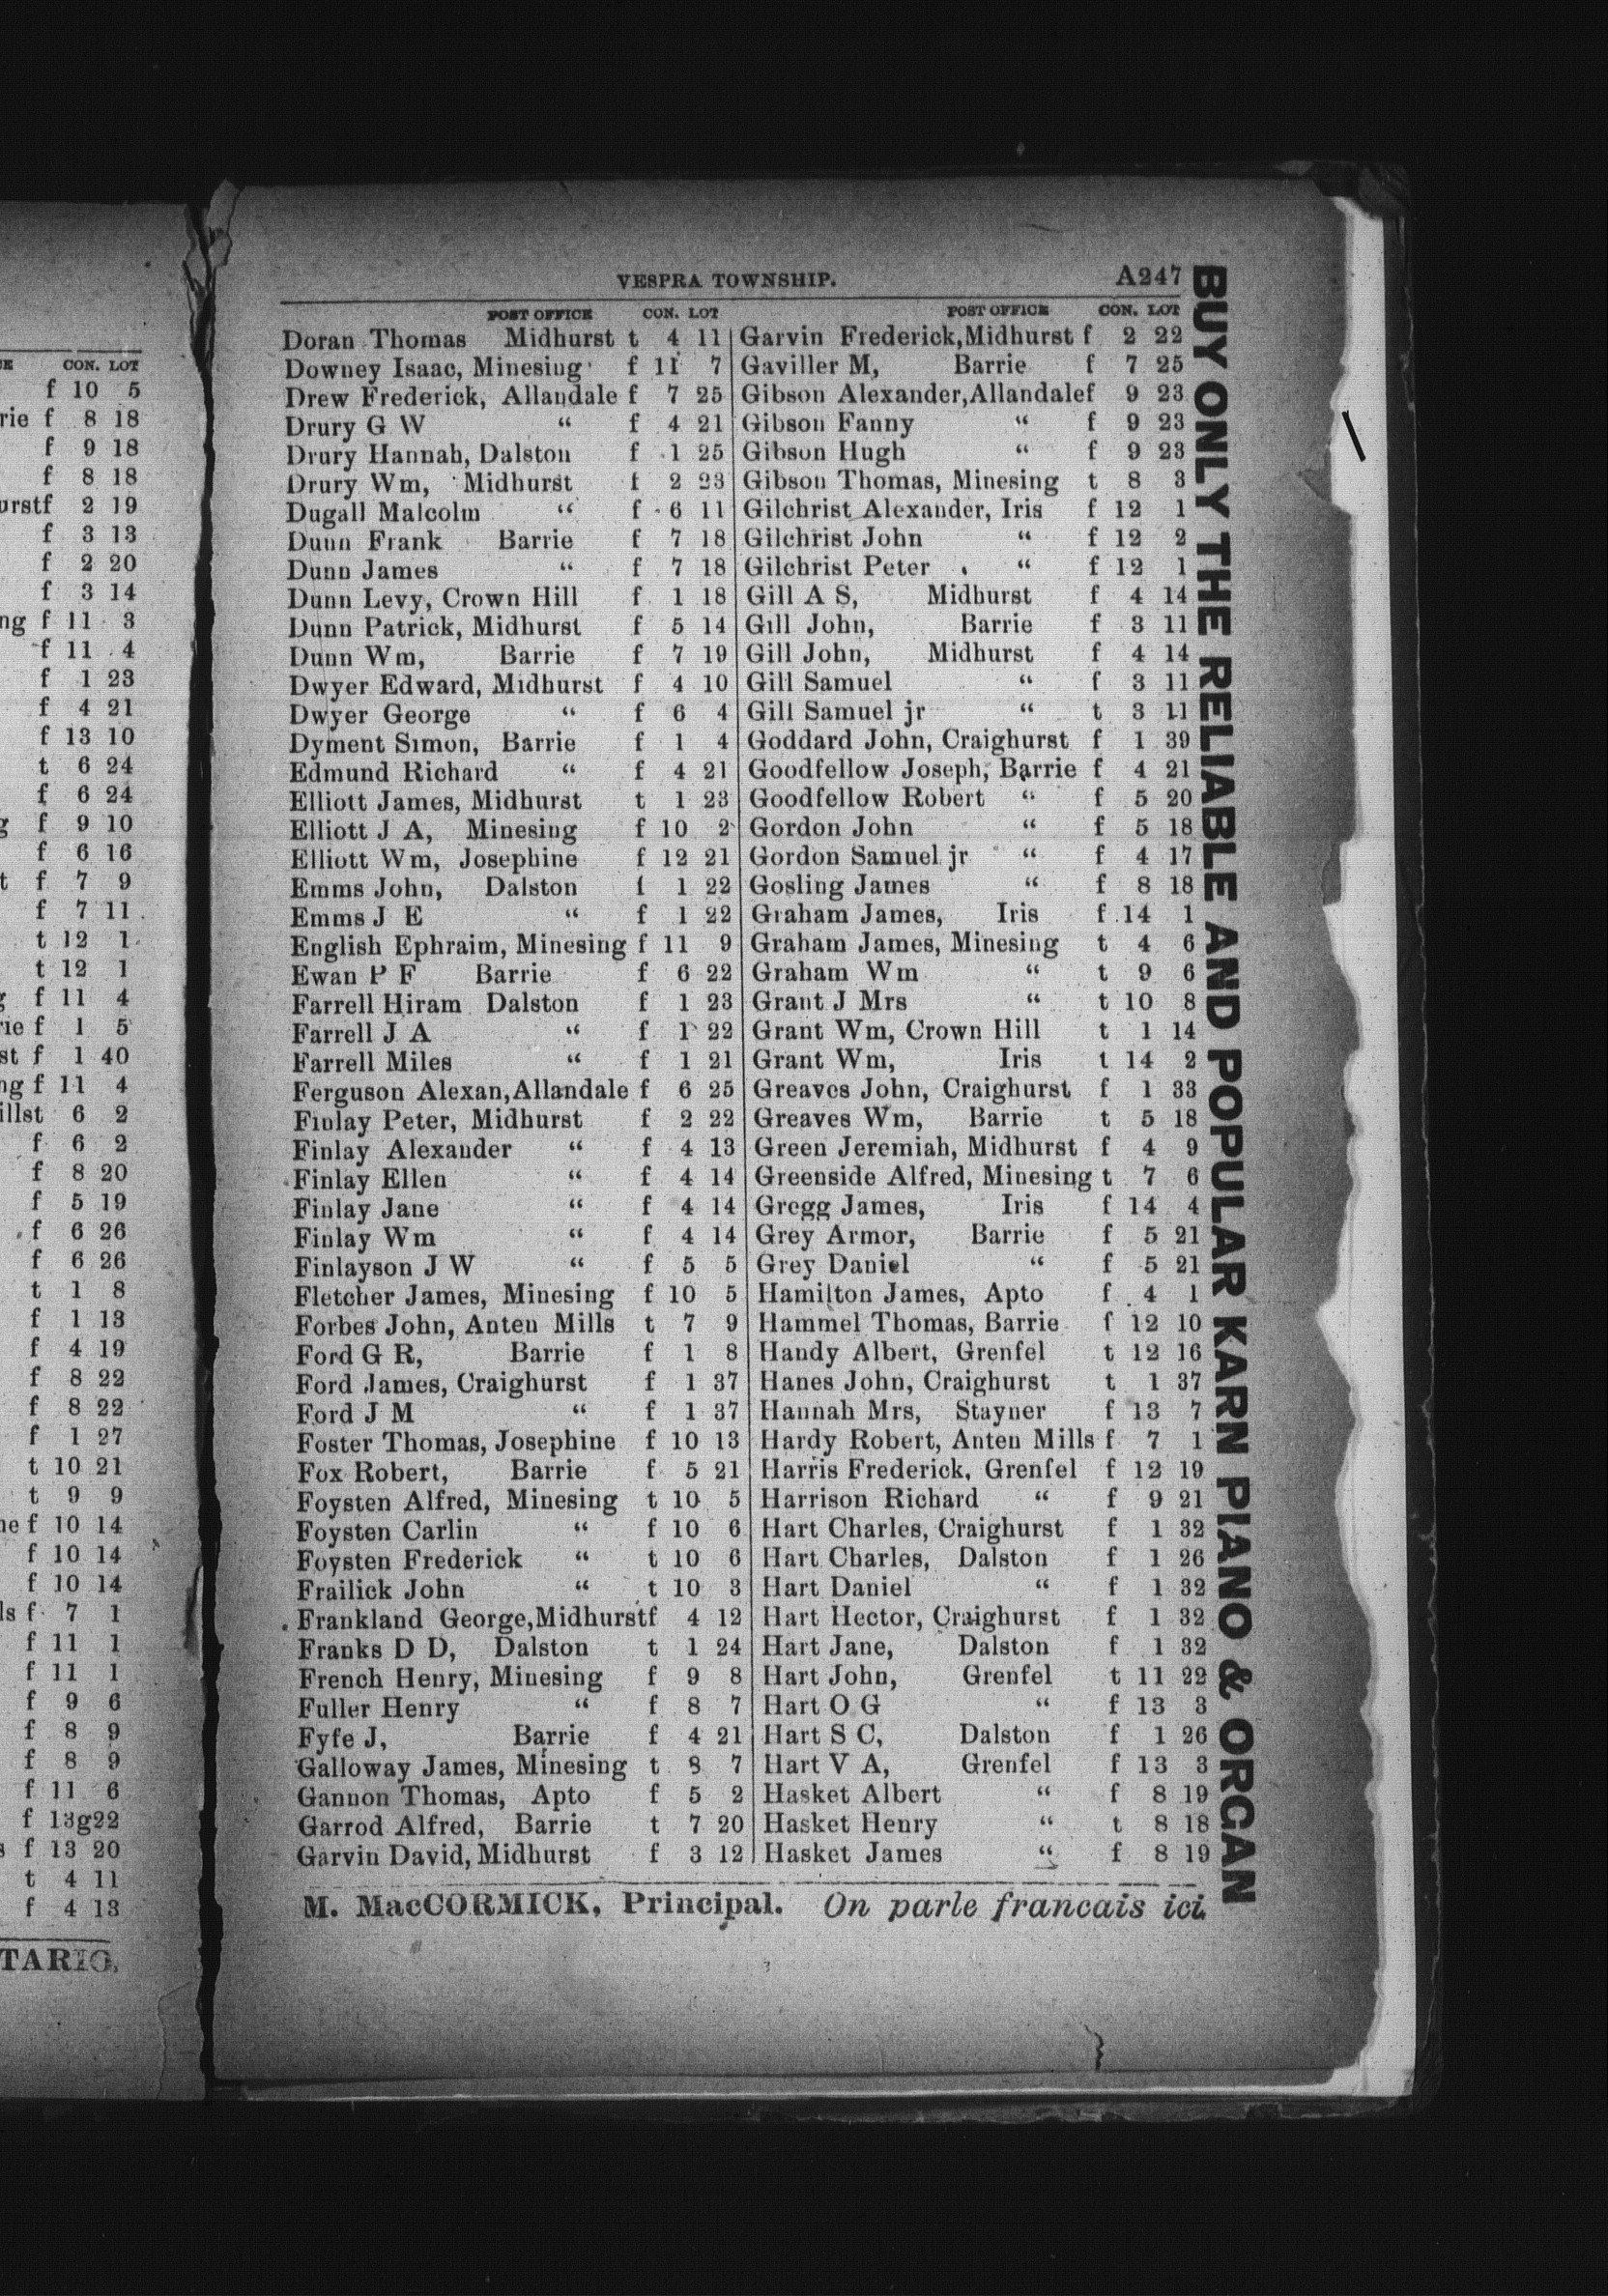 CON. LOT
f 10 5
rie f 8 18
f 9 18
f 8 18
urstf 2 19
f 3 13
f 2 20
f 3 14
ng f 11 3
f 11 4
f 1 23
f 4 21
f 13 10
t 6 24
f 6 24
g f 9 10
f 6 16
t f 7 9
f 7 11
t 12 1
t 12 1
g f 11 4
rie f 1 5
st f 1 40
ng f 11 4
illst 6 2
f 6 2
f 8 20
f 5 19
f 6 26
f 6 26
t 1 8
f 1 13
f 4 19
f 8 22
f 8 22
f 1 27
t 10 21
t 9 9
ne f 10 14
f 10 14
f 10 14
ls f 7 1
f 11 1
f 11 1
f 9 6
f 8 9
f 8 9
f 11 6
f 13g22
s f 13 20
t 4 11
f 4 13
TARIO.
VESPRA TOWNSHIP. A247
POST OFFICE CON. LOT
Doran Thomas Midhurst t 4 11
Downey Isaac, Minesing f 11 7
Drew Frederick, Allandale f 7 25
Drury G W “ f 4 21
Drury Hannah, Dalston f 1 25
Drury Wm, Midhurst t 2 23
Dugall Malcolm “ f 6 11
Dunn Frank Barrie f 7 18
Dunn James “ f 7 18
Dunn Levy, Crown Hill f 1 18
Dunn Patrick, Midhurst f 5 14
Dunn Wm, Barrie f 7 19
Dwyer Edward, Midhurst f 4 10
Dwyer George “ f 6 4
Dyment Simon, Barrie f 1 4
Edmund Richard “ f 4 21
Elliott James, Midhurst t 1 23
Elliott J A, Minesing f 10 2
Elliott Wm, Josephine f 12 21
Emms John, Dalston f 1 22
Emms J E “ f 1 22
English Ephraim, Minesing f 11 9
Ewan P F Barrie f 6 22
Farrell Hiram Dalston f 1 23
Farrell J A “ f 1 22
Farrell Miles “ f 1 21
Ferguson Alexan, Allandale f 6 25
Finlay Peter, Midhurst f 2 22
Finlay Alexander “ f 4 13
Finlay Ellen “ f 4 14
Finlay Jane “ f 4 14
Finlay Wm “ f 4 14
Finlayson J W “ f 5 5
Fletcher James, Minesing f 10 5
Forbes John, Anten Mills t 7 9
Ford G R, Barrie f 1 8
Ford James, Craighurst f 1 37
Ford J M “ f 1 37
Foster Thomas, Josephine f 10 13
Fox Robert, Barrie f 5 21
Foysten Alfred, Minesing t 10 5
Foysten Carlin “ f 10 6
Foysten Frederick “ t 10 6
Frailick John “ t 10 3
Frankland George, Midhurstf 4 12
Franks D D, Dalston t 1 24
French Henry, Minesing f 9 8
Fuller Henry “ f 8 7
Fyfe J, Barrie f 4 21
Galloway James, Minesing t 8 7
Gannon Thomas, Apto f 5 2
Garrod Alfred, Barrie t 7 20
Garvin David, Midhurst f 3 12
POST OFFICE CON. LOT
Garvin Frederick, Midhurst f 2 22
Gaviller M, Barrie f 7 25
Gibson Alexander, Allandalef 9 23
Gibson Fanny “ f 9 23
Gibson Hugh “ f 9 23
Gibson Thomas, Minesing t 8 3
Gilchrist Alexander, Iris f 12 1
Gilchrist John “ f 12 2
Gilchrist Peter “ f 12 1
Gill A S, Midhurst f 4 14
Gill John, Barrie f 3 11
Gill John, Midhurst f 4 14
Gill Samuel “ f 3 11
Gill Samuel jr “ t 3 11
Goddard John, Craighurst f 1 39
Goodfellow Joseph, Barrie f 4 21
Goodfellow Robert “ f 5 20
Gordon John “ f 5 18
Gordon Samuel jr “ f 4 17
Gosling James “ f 8 18
Graham James, Iris f 14 1
Graham James, Minesing t 4 6
Graham Wm “ t 9 6
Grant J Mrs “ t 10 8
Grant Wm, Crown Hill t 1 14
Grant Wm, Iris t 14 2
Greaves John, Craighurst f 1 33
Greaves Wm, Barrie t 5 18
Green Jeremiah, Midhurst f 4 9
Greenside Alfred, Minesing t 7 6
Gregg James, Iris f 14 4
Grey Armor, Barrie f 5 21
Grey Daniel “ f 5 21
Hamilton James, Apto f 4 1
Hammel Thomas, Barrie f 12 10
Handy Albert, Grenfel t 12 16
Hanes John, Craighurst t 1 37
Hannah Mrs, Stayner f 13 7
Hardy Robert, Anten Mills f 7 1
Harris Frederick, Grenfel f 12 19
Harrison Richard “ f 9 21
Hart Charles, Craighurst f 1 32
Hart Charles, Dalston f 1 26
Hart Daniel “ f 1 32
Hart Hector, Craighurst f 1 32
Hart Jane, Dalston f 1 32
Hart John, Grenfel t 11 22
Hart O G “ f 13 3
Hart S C, Dalston f 1 26
Hart V A, Grenfel f 13 3
Hasket Albert “ f 8 19
Hasket Henry “ t 8 18
Hasket James “ f 8 19
M. MacCORMICK, Principal. On parle francais ici
BUY ONLY THE RELIABLE AND POPULAR KARN PIANO & ORGAN